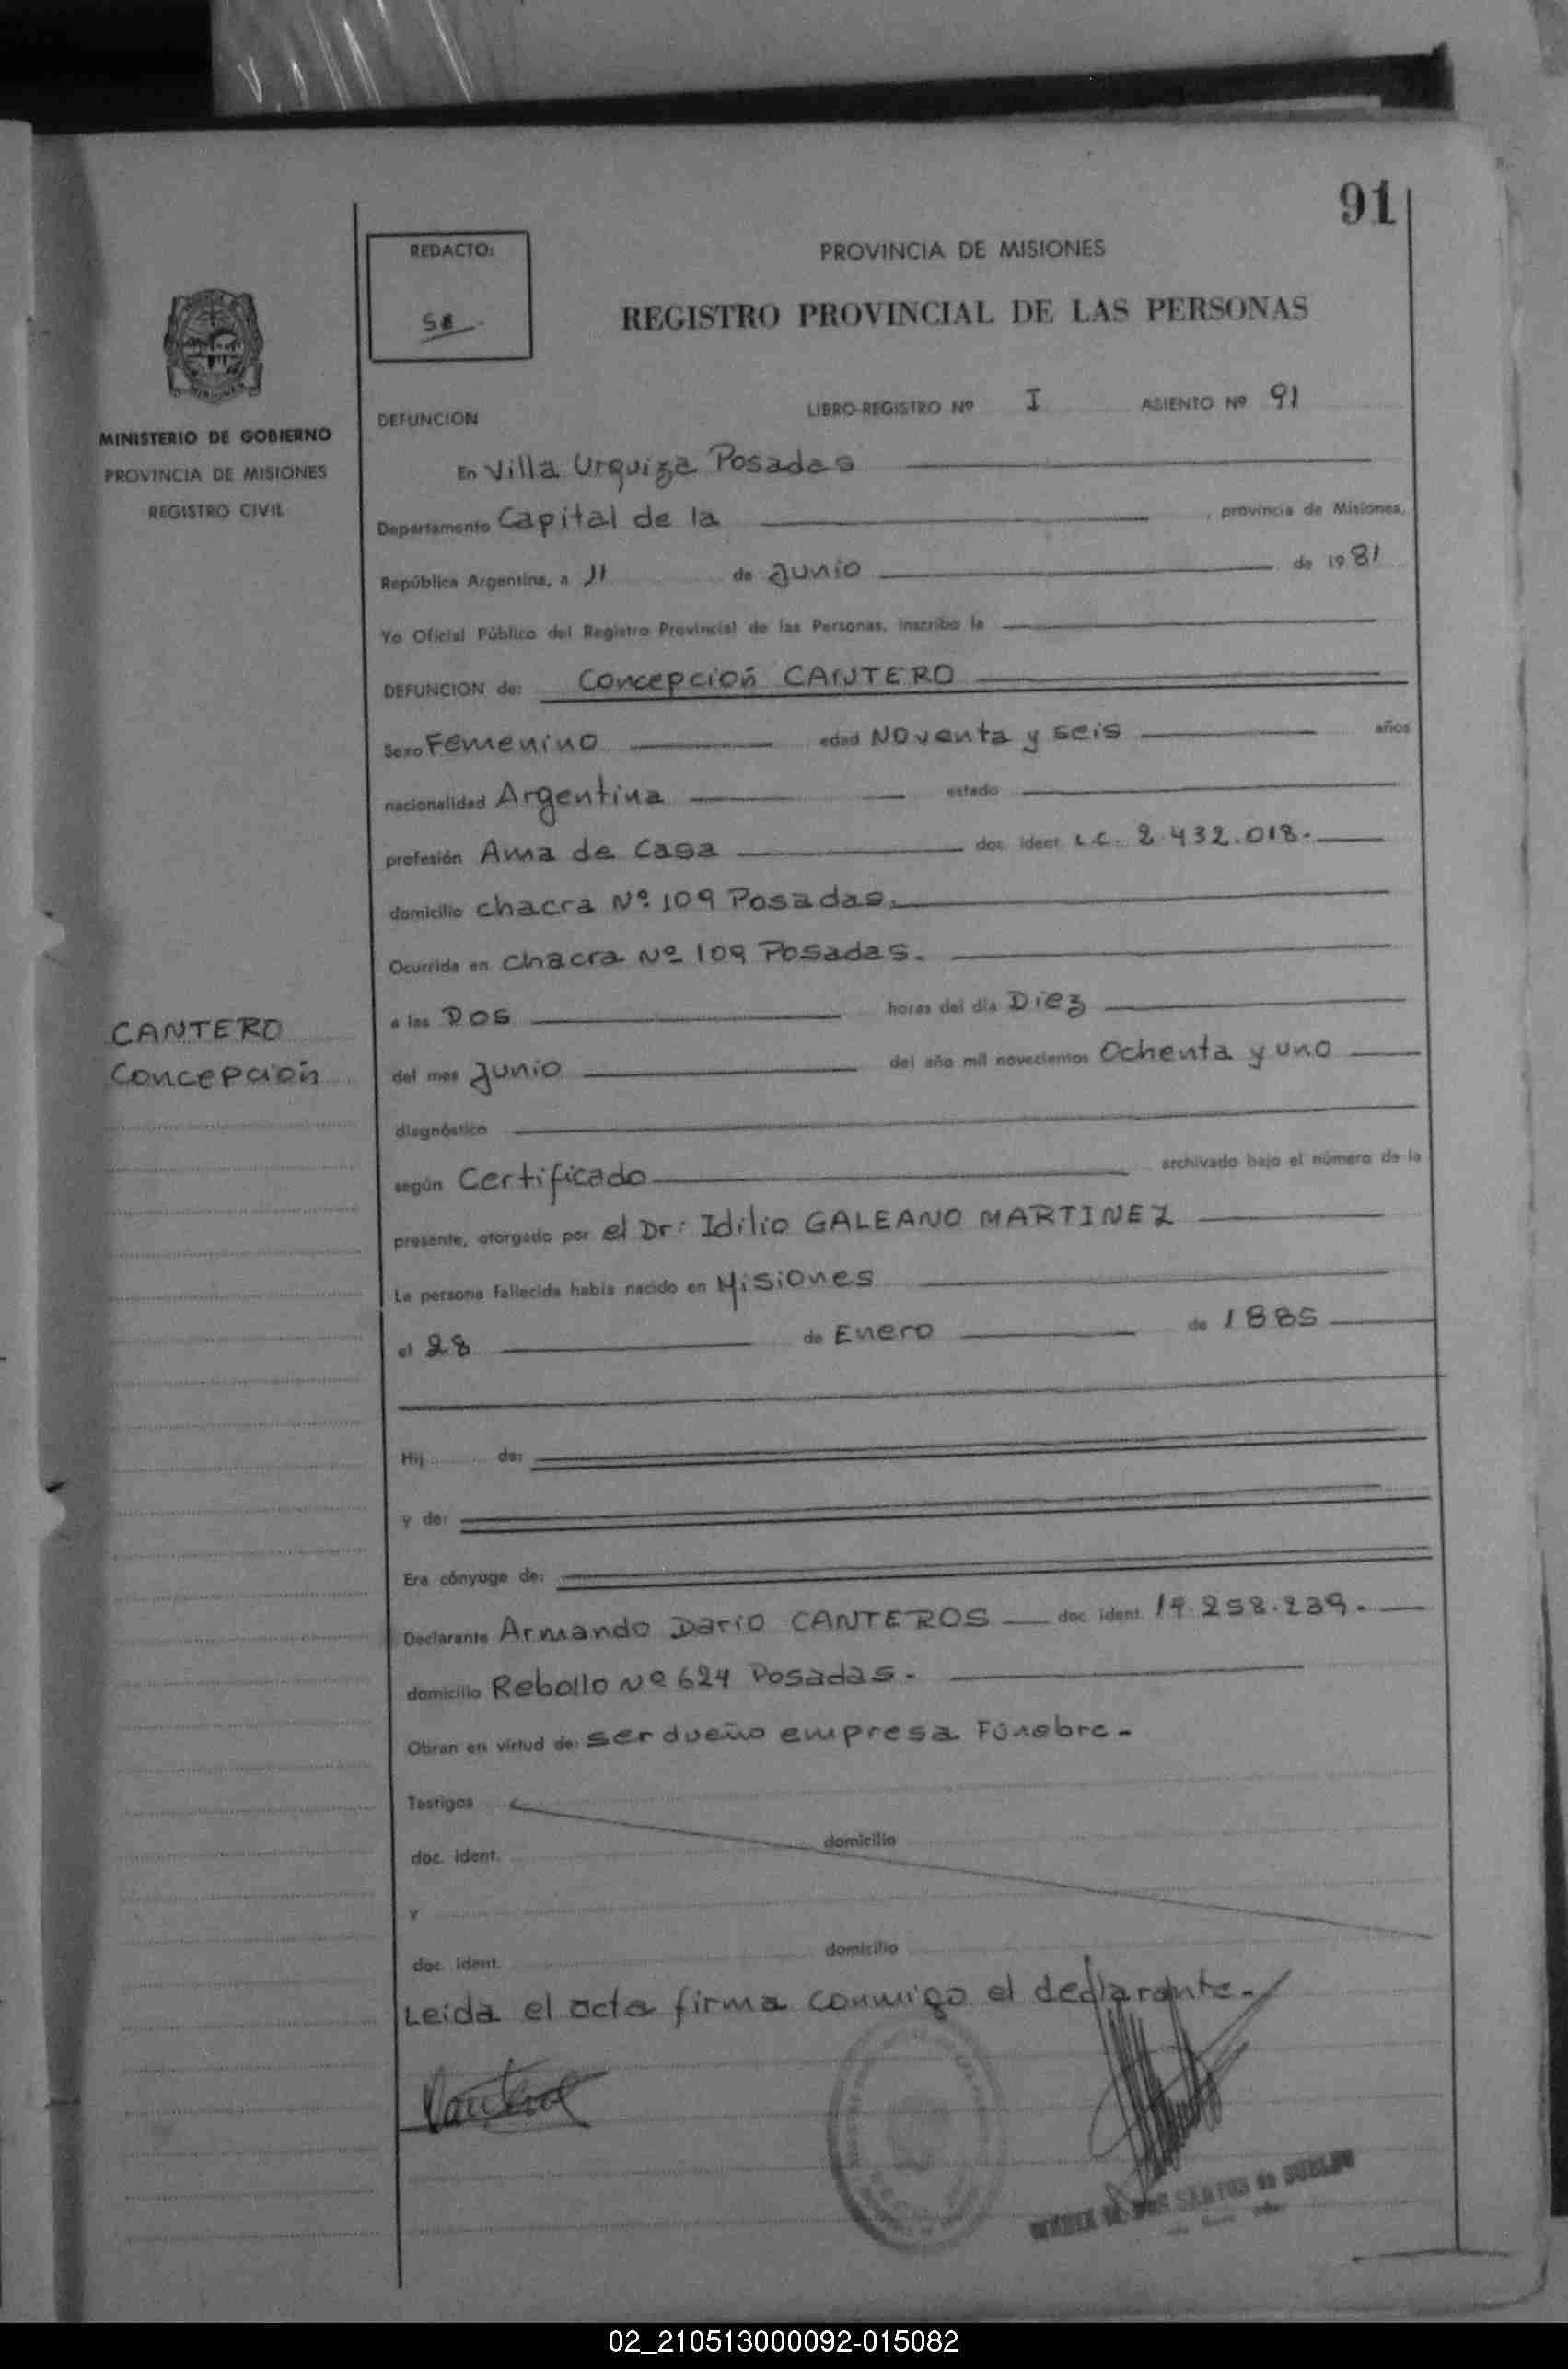 91
REDACTO:
PROVINCIA DE MISIONES
REGISTRO PROVINCIAL DE LAS PERSONAS
MINISTERIO DE GOBIERNO
PROVINCIA DE MISIONES
REGISTRO CIVIL
DEFUNCION LIBRO-REGISTRO Nº I ASIENTO Nº 91
En Villa Urquiza Posadas
Departamento Capital de la , provincia de Misiones,
República Argentina, a 11 de Junio de 1981
Yo Oficial Público del Registro Provincial de las Personas, inscribo la
DEFUNCION de: Concepcioñ CANTERO
Sexo Femenino edad Noventa y seis años
nacionalidad Argentina estado
profesión Ama de Casa doc. ident. L.C. 2.432.018.-
domicilio chacra Nº 109 Posadas.
Ocurrida en chacra Nº 109 Posadas.
a las Dos horas del día Diez
CANTERO
Concepcioñ
del mes Junio del año mil novecientos Ochenta y uno
diagnóstico
según Certificado archivado bajo el número de la
presente, otorgado por el Dr: Idilio GALEANO MARTINEZ
La persona fallecida había nacido en Misiones
el 28 de Enero de 1885
Hij de:
y de:
Era cónyuge de:
Declarante Armando Dario CANTEROS doc. ident. 14.258.239.-
domicilio Rebollo Nº 624 Posadas.-
Obran en virtud de: ser dueño empresa Fúnebre-
Testigos
doc. ident. domicilio
y
doc. ident. domicilio
Leida el acta firma conmigo el declarante.-
DOS SANTOS de
02_210513000092-015082